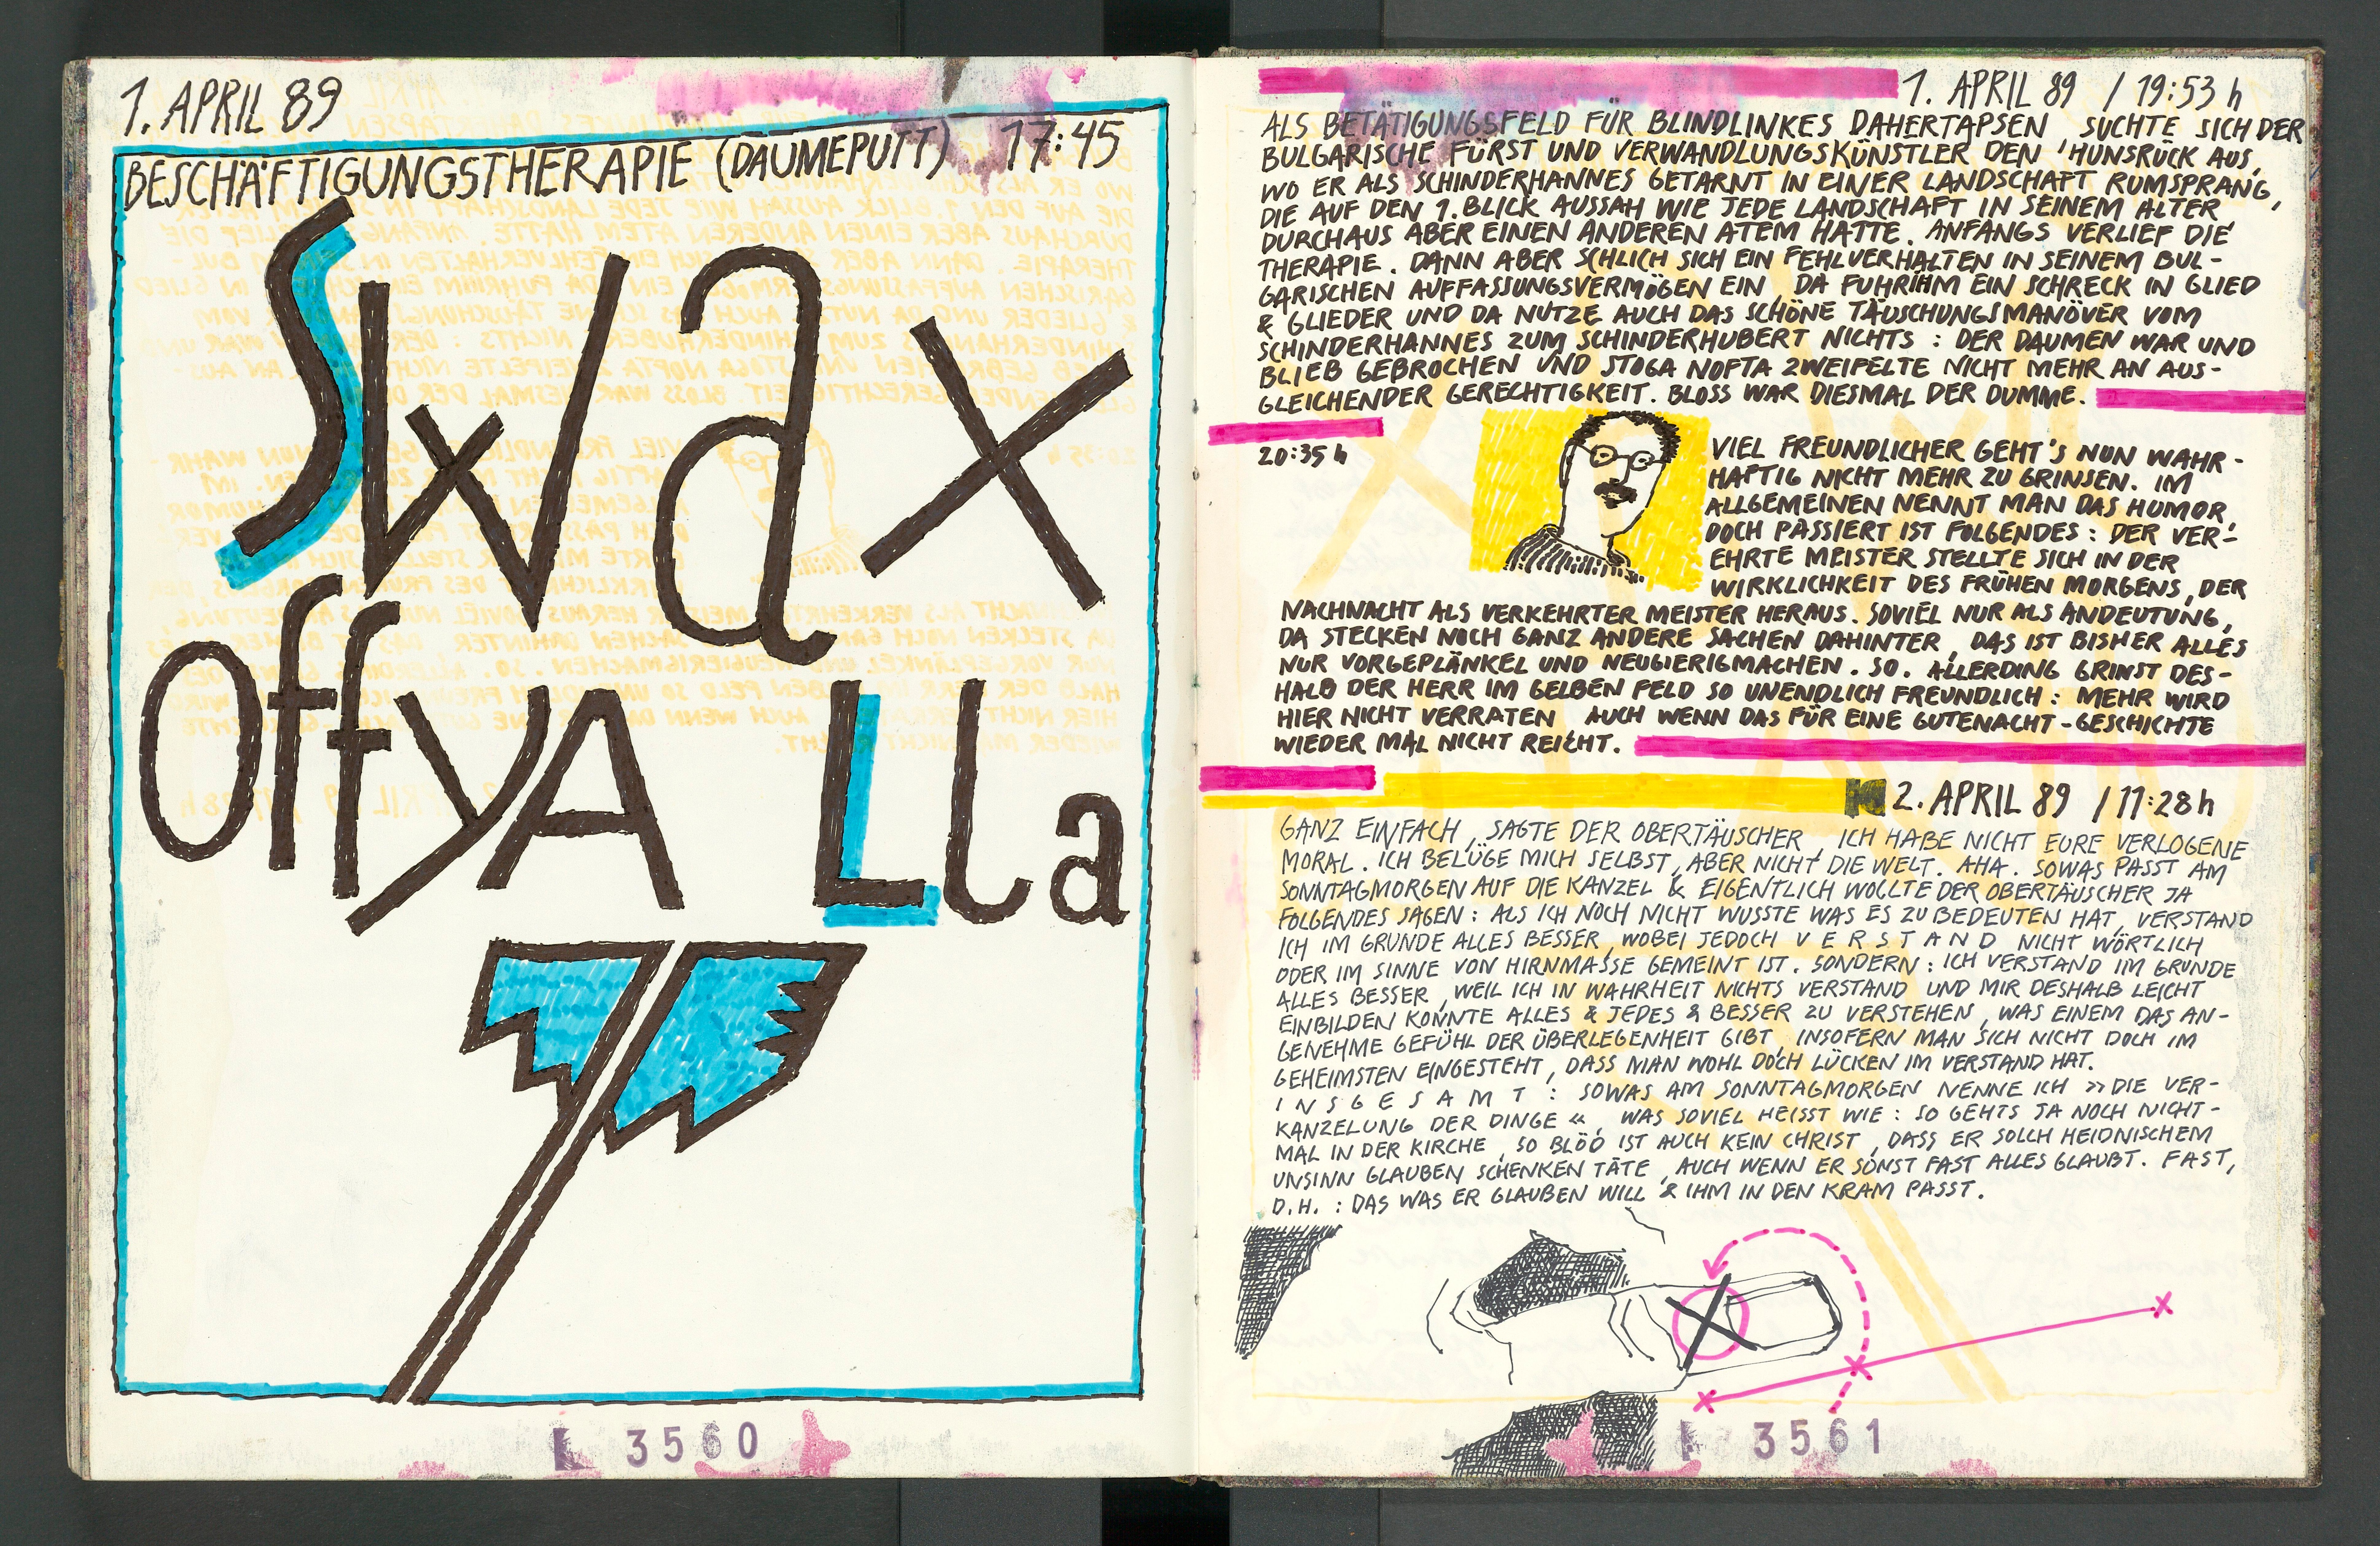 1. APRIL 89
BESCHÄFTIGUNGSTHERAPIE (DAUMEPUTT) 17:45
Swax
offyA Lla
L 3560
1. APRIL 89 / 19:53 h
ALS BETÄTIGUNGSFELD FÜR BLINDLINKES DAHERTAPSEN SUCHTE SICH DER
BULGARISCHE FÜRST UND VERWANDLUNGSKÜNSTLER DEN 'HUNSRÜCK AUS,
WO ER ALS SCHINDERHANNES GETARNT IN EINER LANDSCHAFT RUMSPRANG,
DIE AUF DEN 1. BLICK AUSSAH WIE JEDE LANDSCHAFT IN SEINEM ALTER,
DURCHAUS ABER EINEN ANDEREN ATEM HATTE. ANFANGS VERLIEF DIE
THERAPIE. DANN ABER SCHLICH SICH EIN FEHLVERHALTEN IN SEINEM BUL-
GARISCHEN AUFFASSUNGSVERMÖGEN EIN DA FUHR IHM EIN SCHRECK IN GLIED
& GLIEDER UND DA NUTZE AUCH DAS SCHÖNE TÄUSCHUNGSMANÖVER VOM
SCHINDERHANNES ZUM SCHINDERHUBERT NICHTS : DER DAUMEN WAR UND
BLIEB GEBROCHEN UND STOGA NOFTA ZWEIFELTE NICHT MEHR AN AUS-
GLEICHENDER GERECHTIGKEIT. BLOSS WAR DIESMAL DER DUMME.
20:35 h
VIEL FREUNDLICHER GEHT'S NUN WAHR-
HAFTIG NICHT MEHR ZU GRINSEN. IM
ALLGEMEINEN NENNT MAN DAS HUMOR,
DOCH PASSIERT IST FOLGENDES : DER VER-
EHRTE MEISTER STELLTE SICH IN DER
WIRKLICHKEIT DES FRÜHEN MORGENS, DER
NACHNACHT ALS VERKEHRTER MEISTER HERAUS. SOVIEL NUR ALS ANDEUTUNG,
DA STECKEN NOCH GANZ ANDERE SACHEN DAHINTER, DAS IST BISHER ALLES
NUR VORGEPLÄNKEL UND NEUGIERIGMACHEN. SO. ALLERDING GRINST DES-
HALB DER HERR IM GELBEN FELD SO UNENDLICH FREUNDLICH : MEHR WIRD
HIER NICHT VERRATEN AUCH WENN DAS FÜR EINE GUTENACHT-GESCHICHTE
WIEDER MAL NICHT REICHT.
2. APRIL 89 / 11:28 h
GANZ EINFACH, SAGTE DER OBERTÄUSCHER, ICH HABE NICHT EURE VERLOGENE
MORAL. ICH BELÜGE MICH SELBST, ABER NICHT DIE WELT. AHA. SOWAS PASST AM
SONNTAGMORGEN AUF DIE KANZEL & EIGENTLICH WOLLTE DER OBERTÄUSCHER JA
FOLGENDES SAGEN : ALS ICH NOCH NICHT WUSSTE WAS ES ZU BEDEUTEN HAT, VERSTAND
ICH IM GRUNDE ALLES BESSER, WOBEI JEDOCH V E R S T A N D NICHT WÖRTLICH
ODER IM SINNE VON HIRNMASSE GEMEINT IST. SONDERN : ICH VERSTAND IM GRUNDE
ALLES BESSER, WEIL ICH IN WAHRHEIT NICHTS VERSTAND UND MIR DESHALB LEICHT
EINBILDEN KONNTE ALLES & JEDES & BESSER ZU VERSTEHEN, WAS EINEM DAS AN-
GENEHME GEFÜHL DER ÜBERLEGENHEIT GIBT, INSOFERN MAN SICH NICHT DOCH IM
GEHEIMSTEN EINGESTEHT, DASS MAN WOHL DOCH LÜCKEN IM VERSTAND HAT.
I N S G E S A M T : SOWAS AM SONNTAGMORGEN NENNE ICH »DIE VER-
KANZELUNG DER DINGE«, WAS SOVIEL HEISST WIE : SO GEHTS JA NOCH NICHT-
MAL IN DER KIRCHE, SO BLÖD IST AUCH KEIN CHRIST, DASS ER SOLCH HEIDNISCHEM
UNSINN GLAUBEN SCHENKEN TÄTE, AUCH WENN ER SONST FAST ALLES GLAUBT. FAST,
D.H. : DAS WAS ER GLAUBEN WILL & IHM IN DEN KRAM PASST.
3561